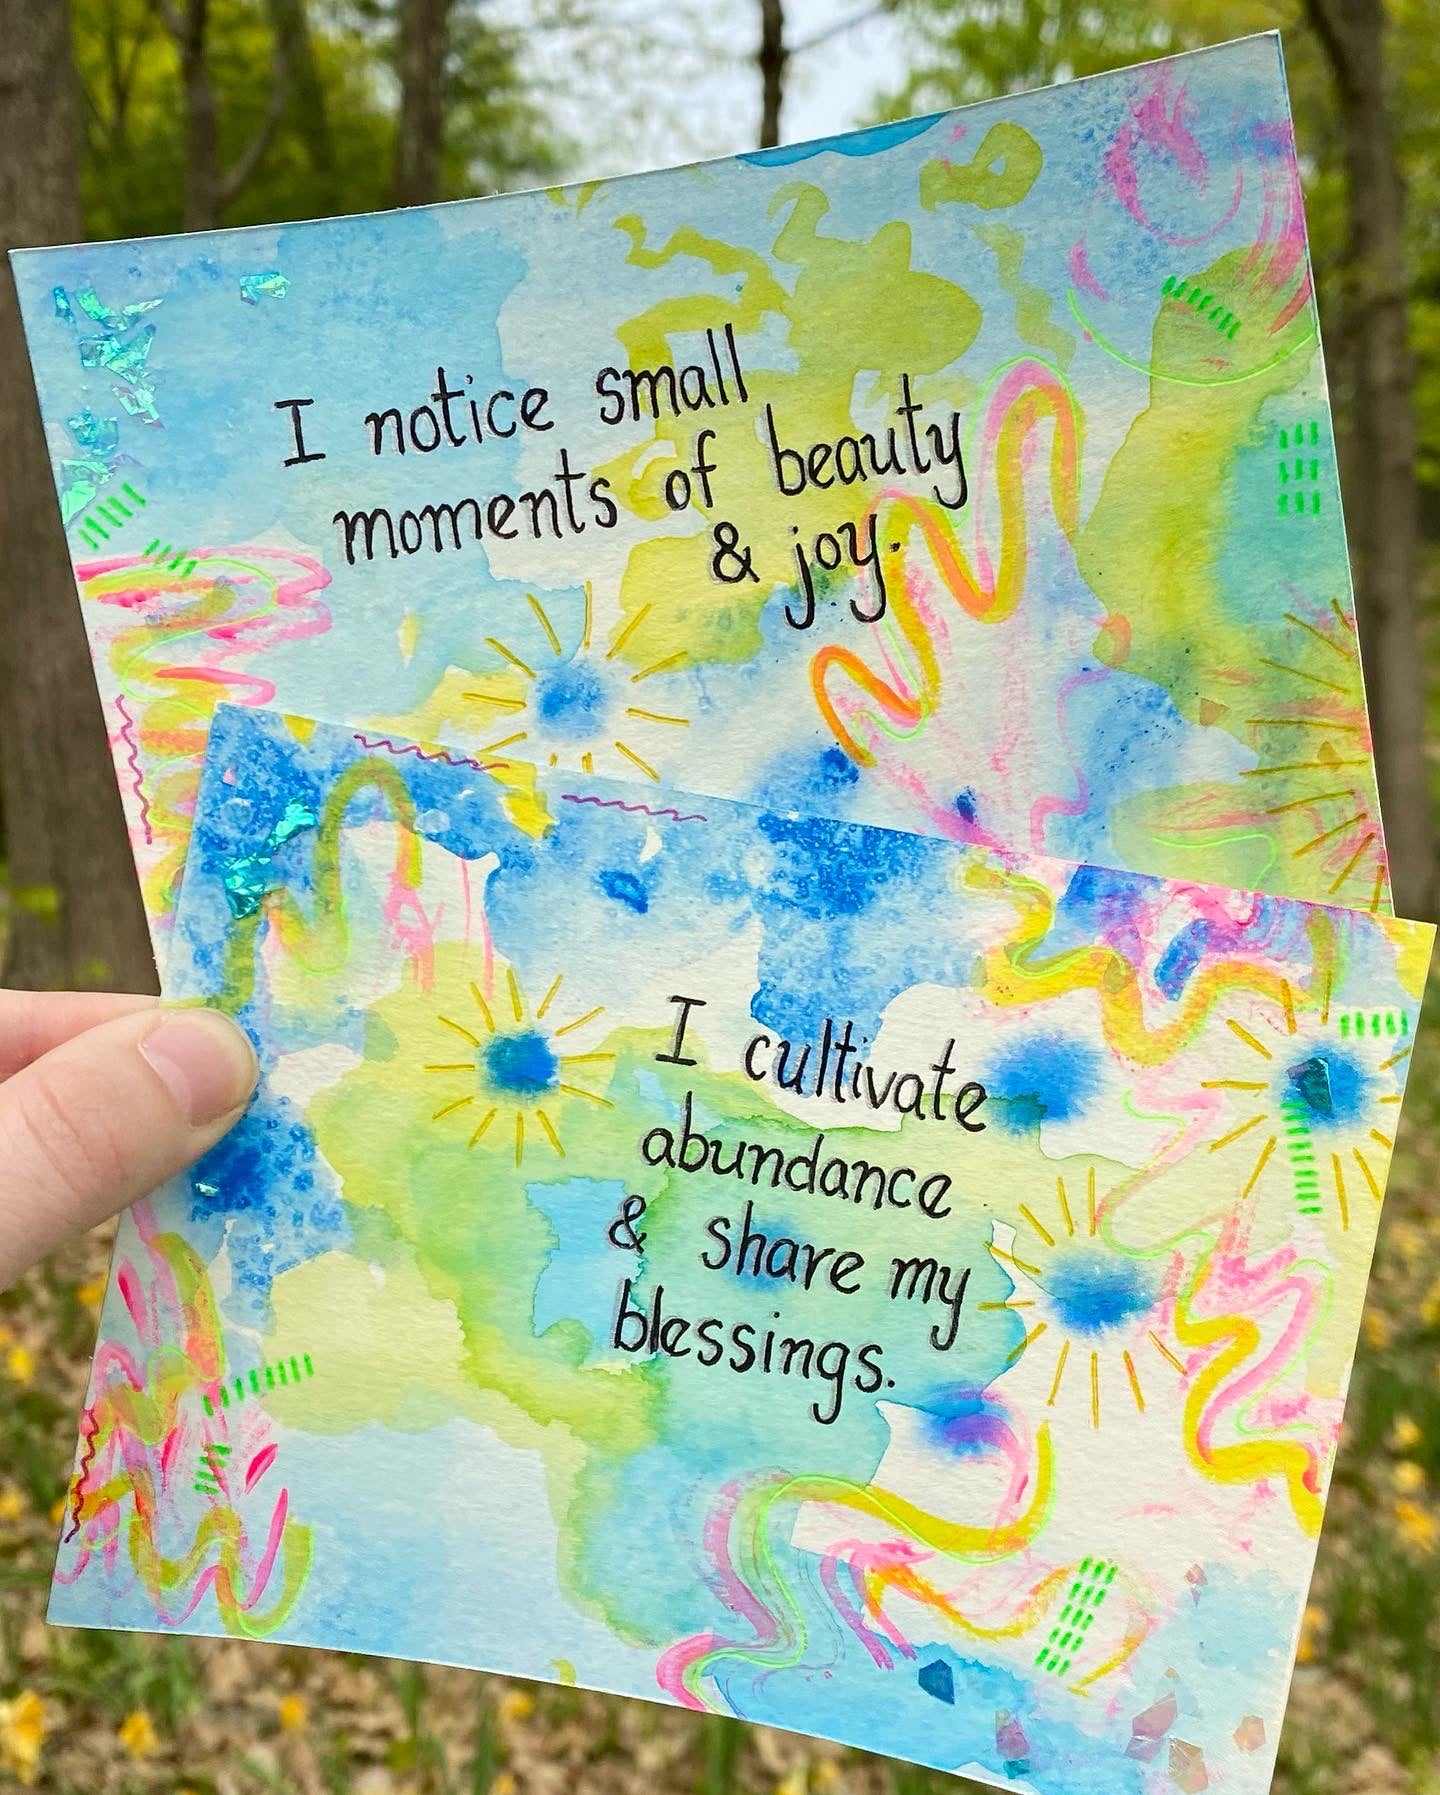 I notice small
moments of beauty
& joy.
I cultivate
abundance
& share my
blessings.